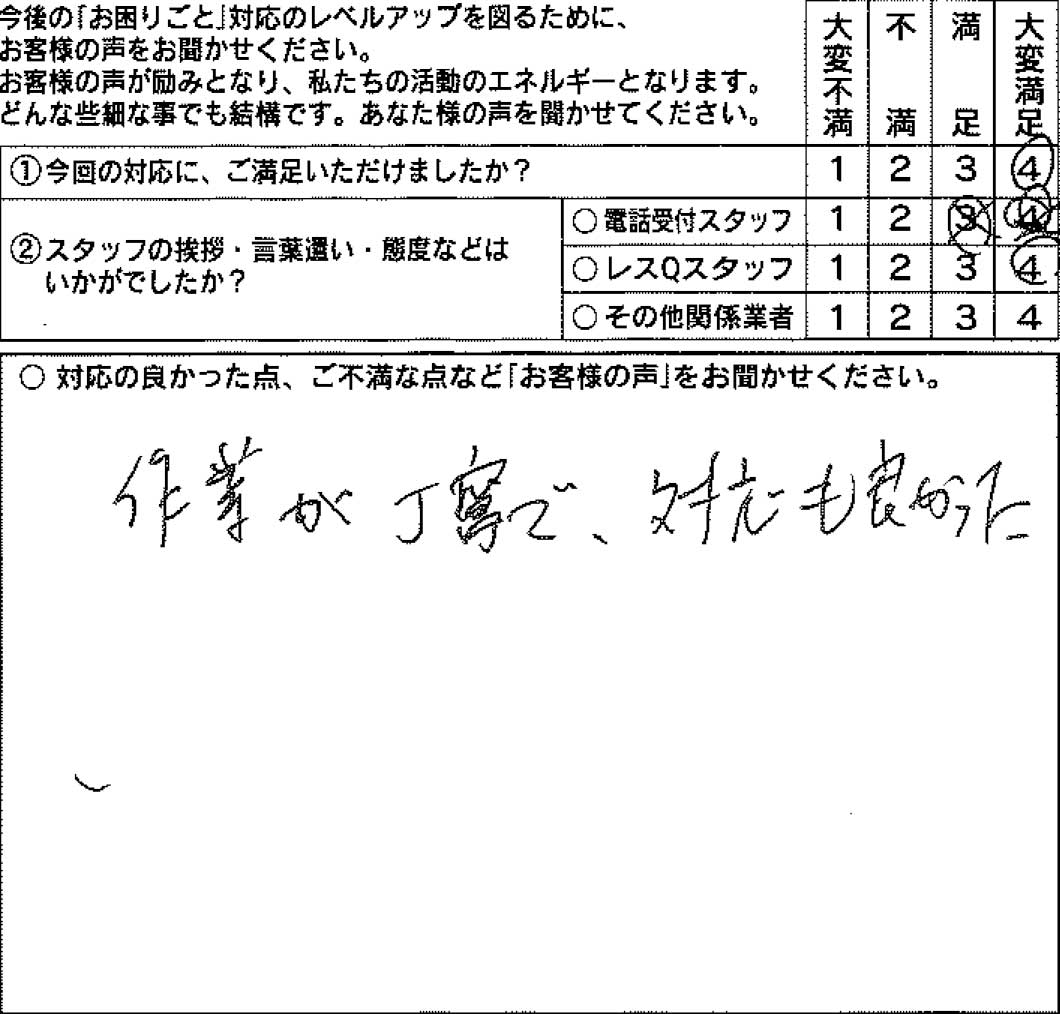 今後の「お困りごと」対応のレベルアップを図るために、
お客様の声をお聞かせください。
お客様の声が励みとなり、私たちの活動のエネルギーとなります。
どんな些細な事でも結構です。あなた様の声を聞かせてください。
大変不満 不満 満足 大変満足
①今回の対応に、ご満足いただけましたか？ 1 2 3 4
②スタッフの挨拶・言葉遣い・態度などは
いかがでしたか？
○電話受付スタッフ 1 2 3 4
○レスQスタッフ 1 2 3 4
○その他関係業者 1 2 3 4
○ 対応の良かった点、ご不満な点など「お客様の声」をお聞かせください。
作業が丁寧で、対応も良かった